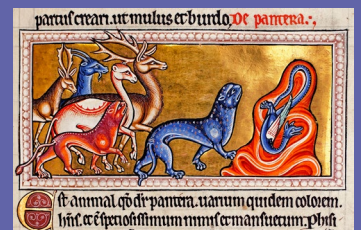 partus creari. ut mulus et burdo. De pantera.
Est animal qd dr pantera. uarium quidem colorem.
hns. et e speciosissimum nimis et mansuetum. Phisi